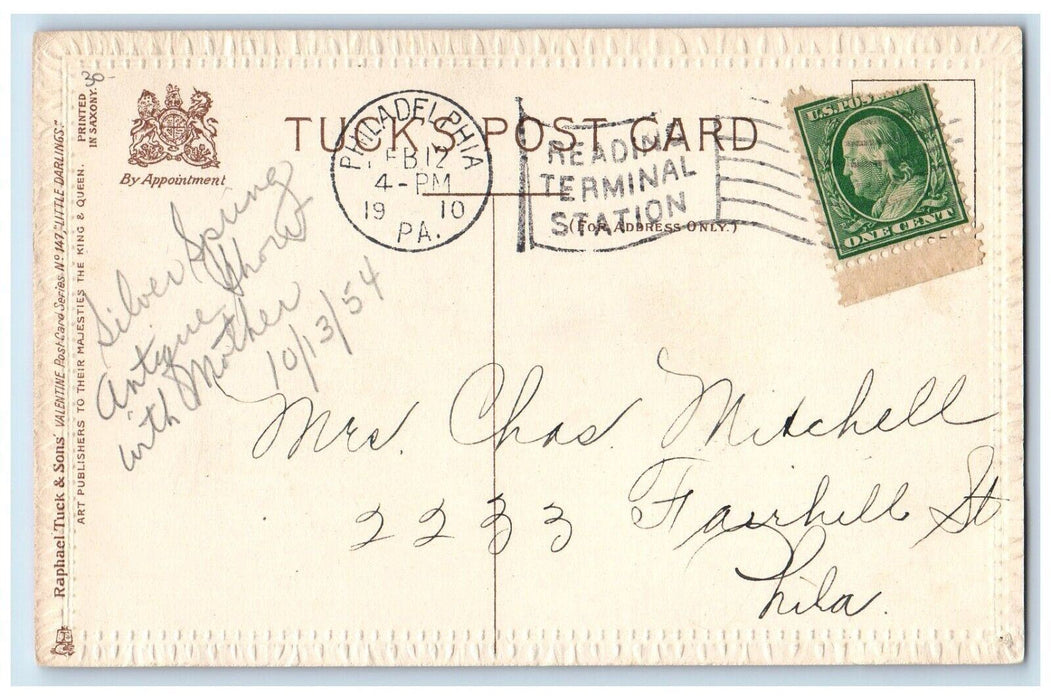 TUCK'S POST CARD
(FOR ADDRESS ONLY.)
By Appointment
PRINTED
IN SAXONY.
30-
Raphael Tuck & Sons' VALENTINE Post Card Series No 147, "LITTLE DARLINGS."
ART PUBLISHERS TO THEIR MAJESTIES THE KING & QUEEN.
PHILADELPHIA
FEB 12
4-PM
19 10
PA.
READING
TERMINAL
STATION
U.S. POS
ONE CENT
Silver Spring
Antique Show
with Mother
10/13/54
Mrs. Chas. Mitchell
2233 Fairhill St
Phila.